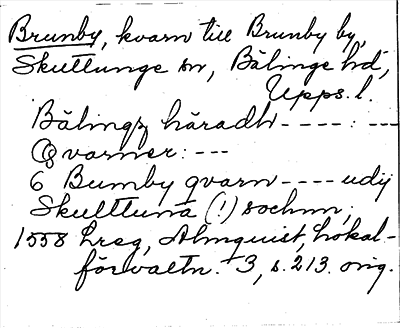 Brunby, kvarn till Brunby by,
Skuttunge sn, Bälinge hd,
Upps. l.
Bälingz häradh ----:---
Qvarner: ---
6 Bumby qvarn ---- udij
Skulttuna (!) sochnn;
1558 Lreg, Almquist, Lokal-
förvaltn. 3, s. 213. orig.